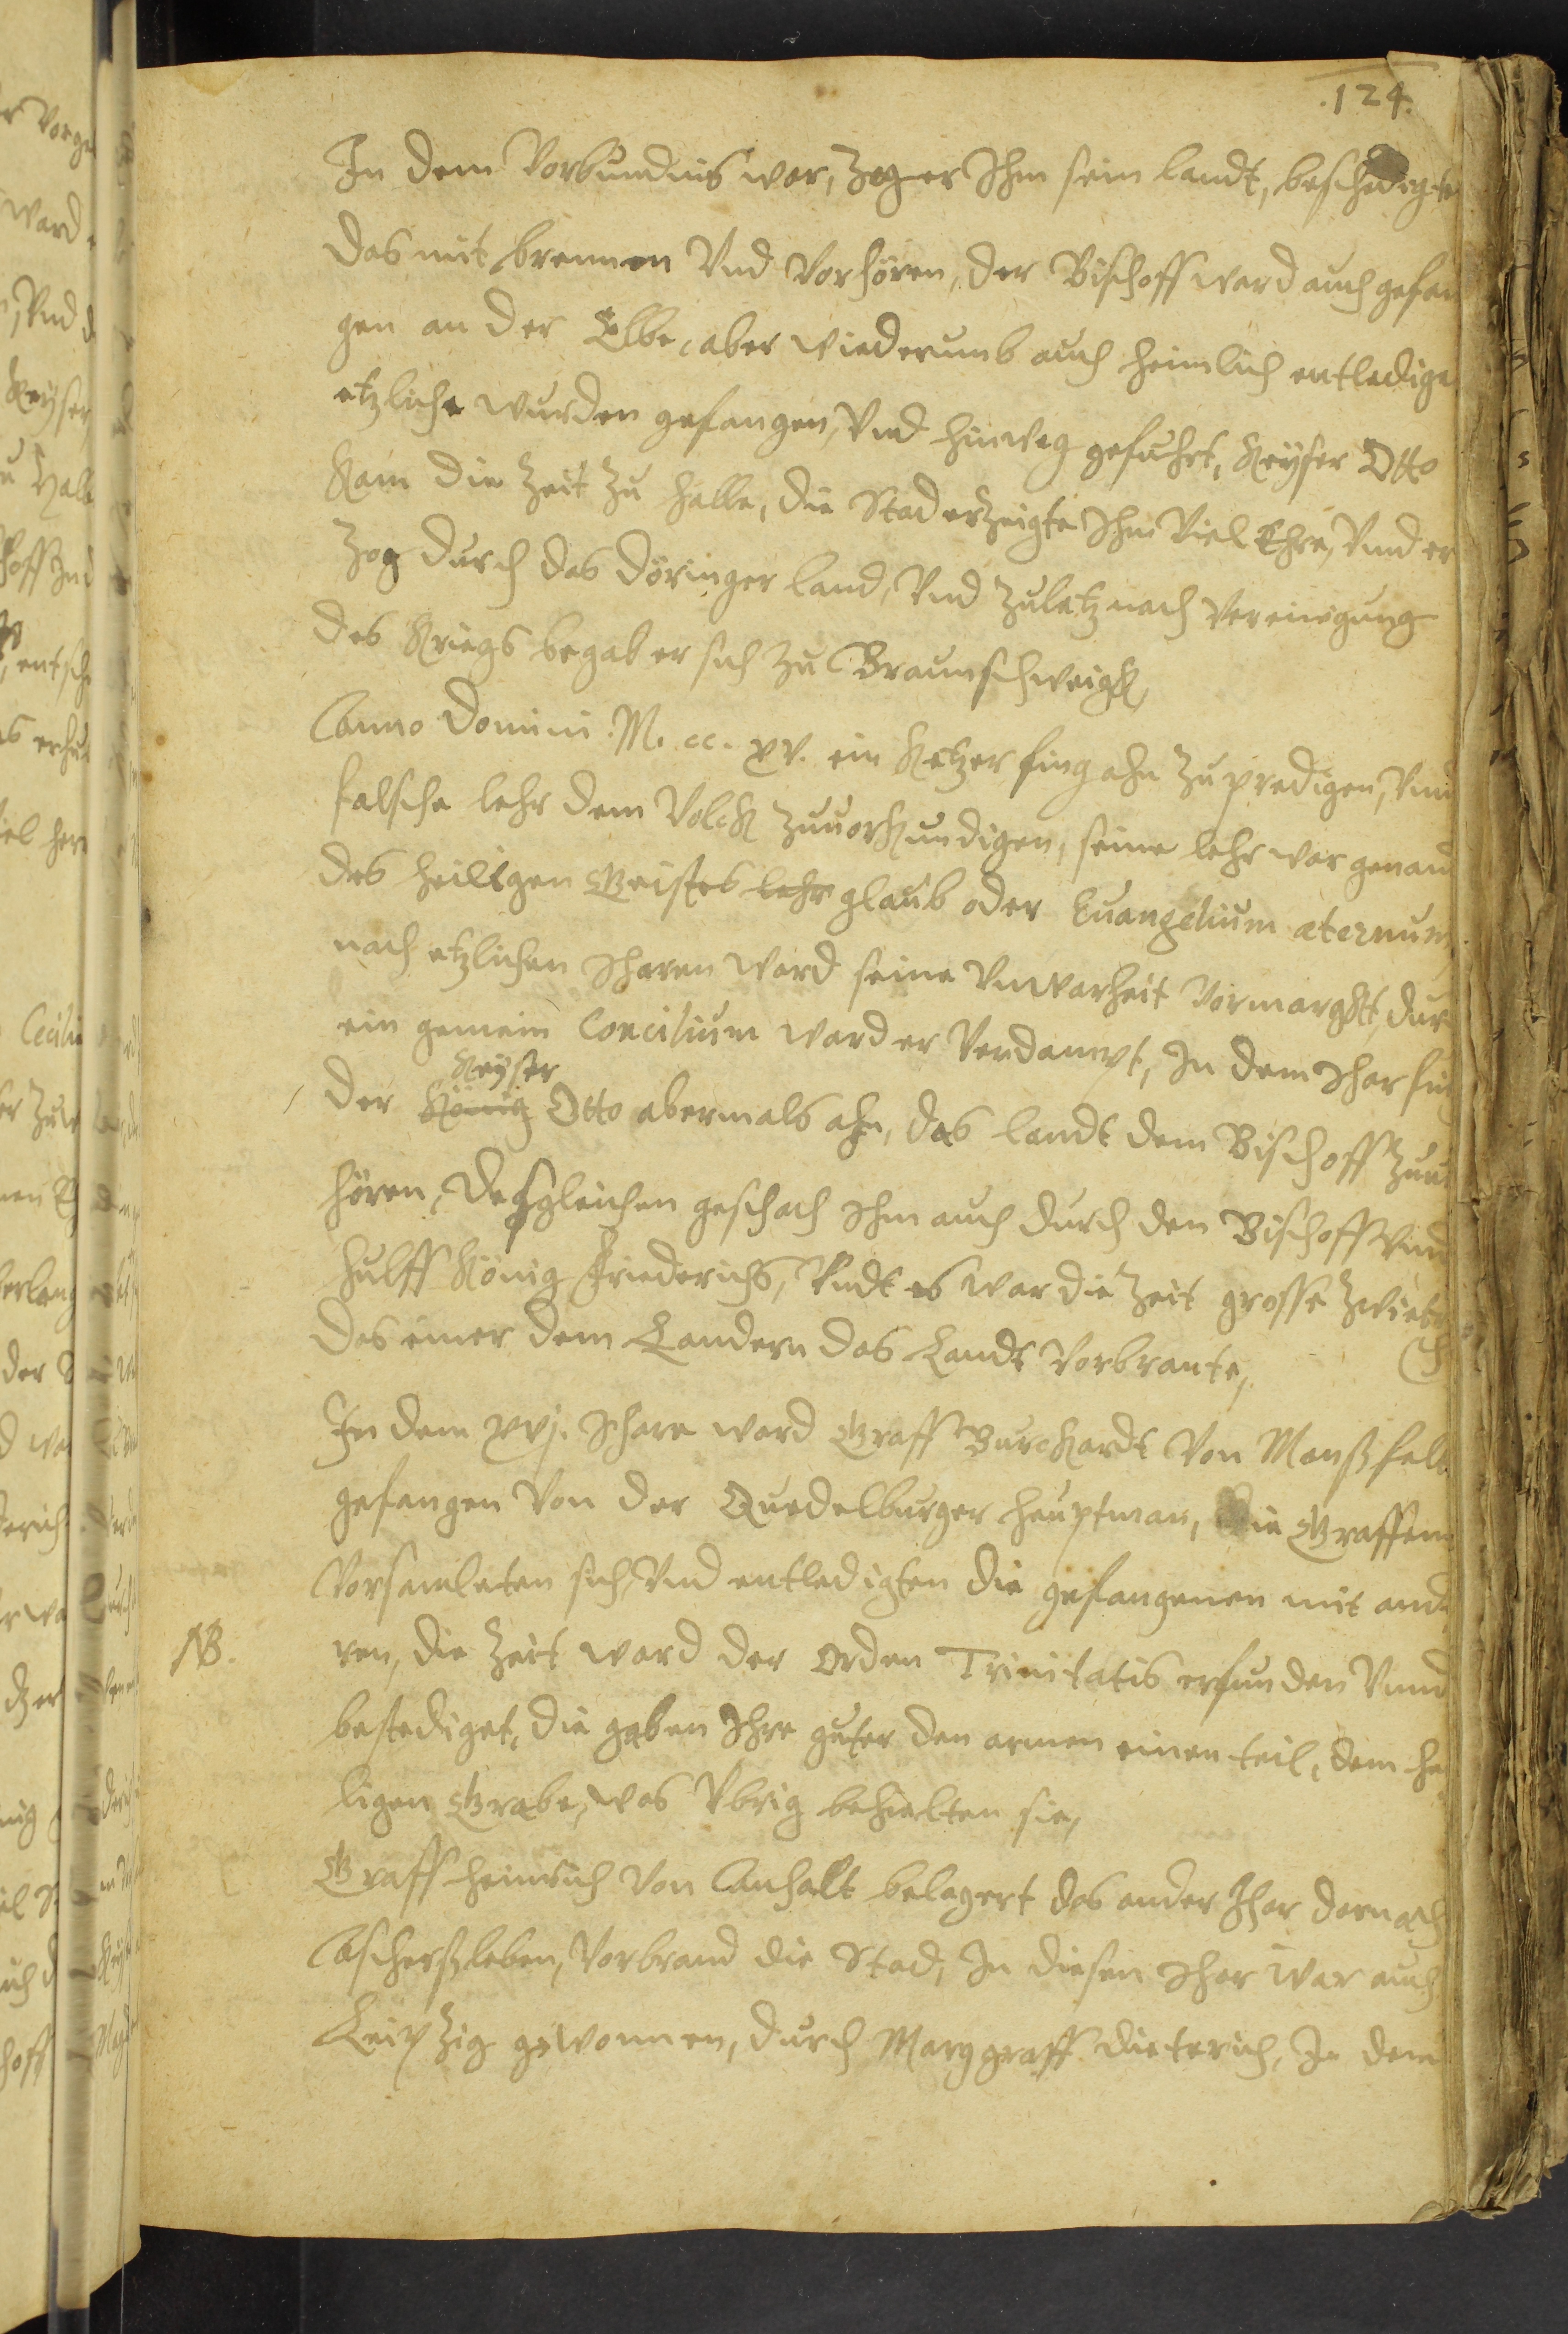 .124.
In dem Vorbundnis war, Zog er Ihm sein landt, beschedigte
das mit brennen Vnd Vorhören, der Bischoff ward auch gefan
gen an der Elbe, aber wiederumb auch heimlich entledige
etzliche wurden gefangen, Vnd hinweg gefuhrt, Keyser Otto
kam die Zeit zu Halle, die Stad erzeigte Ihm Viel Ehre, Vnd er
Zog durch das döringer land, Vnd Zuletz nach Vereinigung
des Kriegs begab er sich zu Braunschweigk,
Anno Domini M. cc. xv. ein Ketzer fing ahn Zu predigen, Vnd
falsche lehr dem Volck Zuuorkundigen, seine lehr war genand
des heiligen Geistes lehr glaub oder Euangelium æternum,
nach etzlichen Iharen ward seine Vnwarheit Vormarckt, dur
ein gemein Concilium ward er Verdampt, In dem Ihar fin
Keyser
der König Otto abermals ahn, das landt dem Bischoff Zuu
hören, desgleichen geschach Ihm auch durch den Bischoff Vnd
hulff König Friederichs, Vndt es war die Zeit grosse Zwiet
das einer dem Landern das Landt Vorbrante,
In dem xvj. Ihare ward Graff Burckardt Von Mansfelt
gefangen Von der Quedelburger hauptman, die Graffen
Vorsamleten sich, Vnd entledigten die gefangenen mit and
NB. ren, die Zeit ward der Orden Trinitatis erfunden Vnnd
bestediget, die gaben Ihre guter den armen einen teil, dem he
ligen Grabe, was Vbrig behielten sie,
Graff Heinrich Von Anhalt belagert das ander Ihar darnach
Aschersleben, Vorbrand die Stad, In diesen Ihar war auch
Leipzig gewonnen, durch Marggraff dieterich, In dem